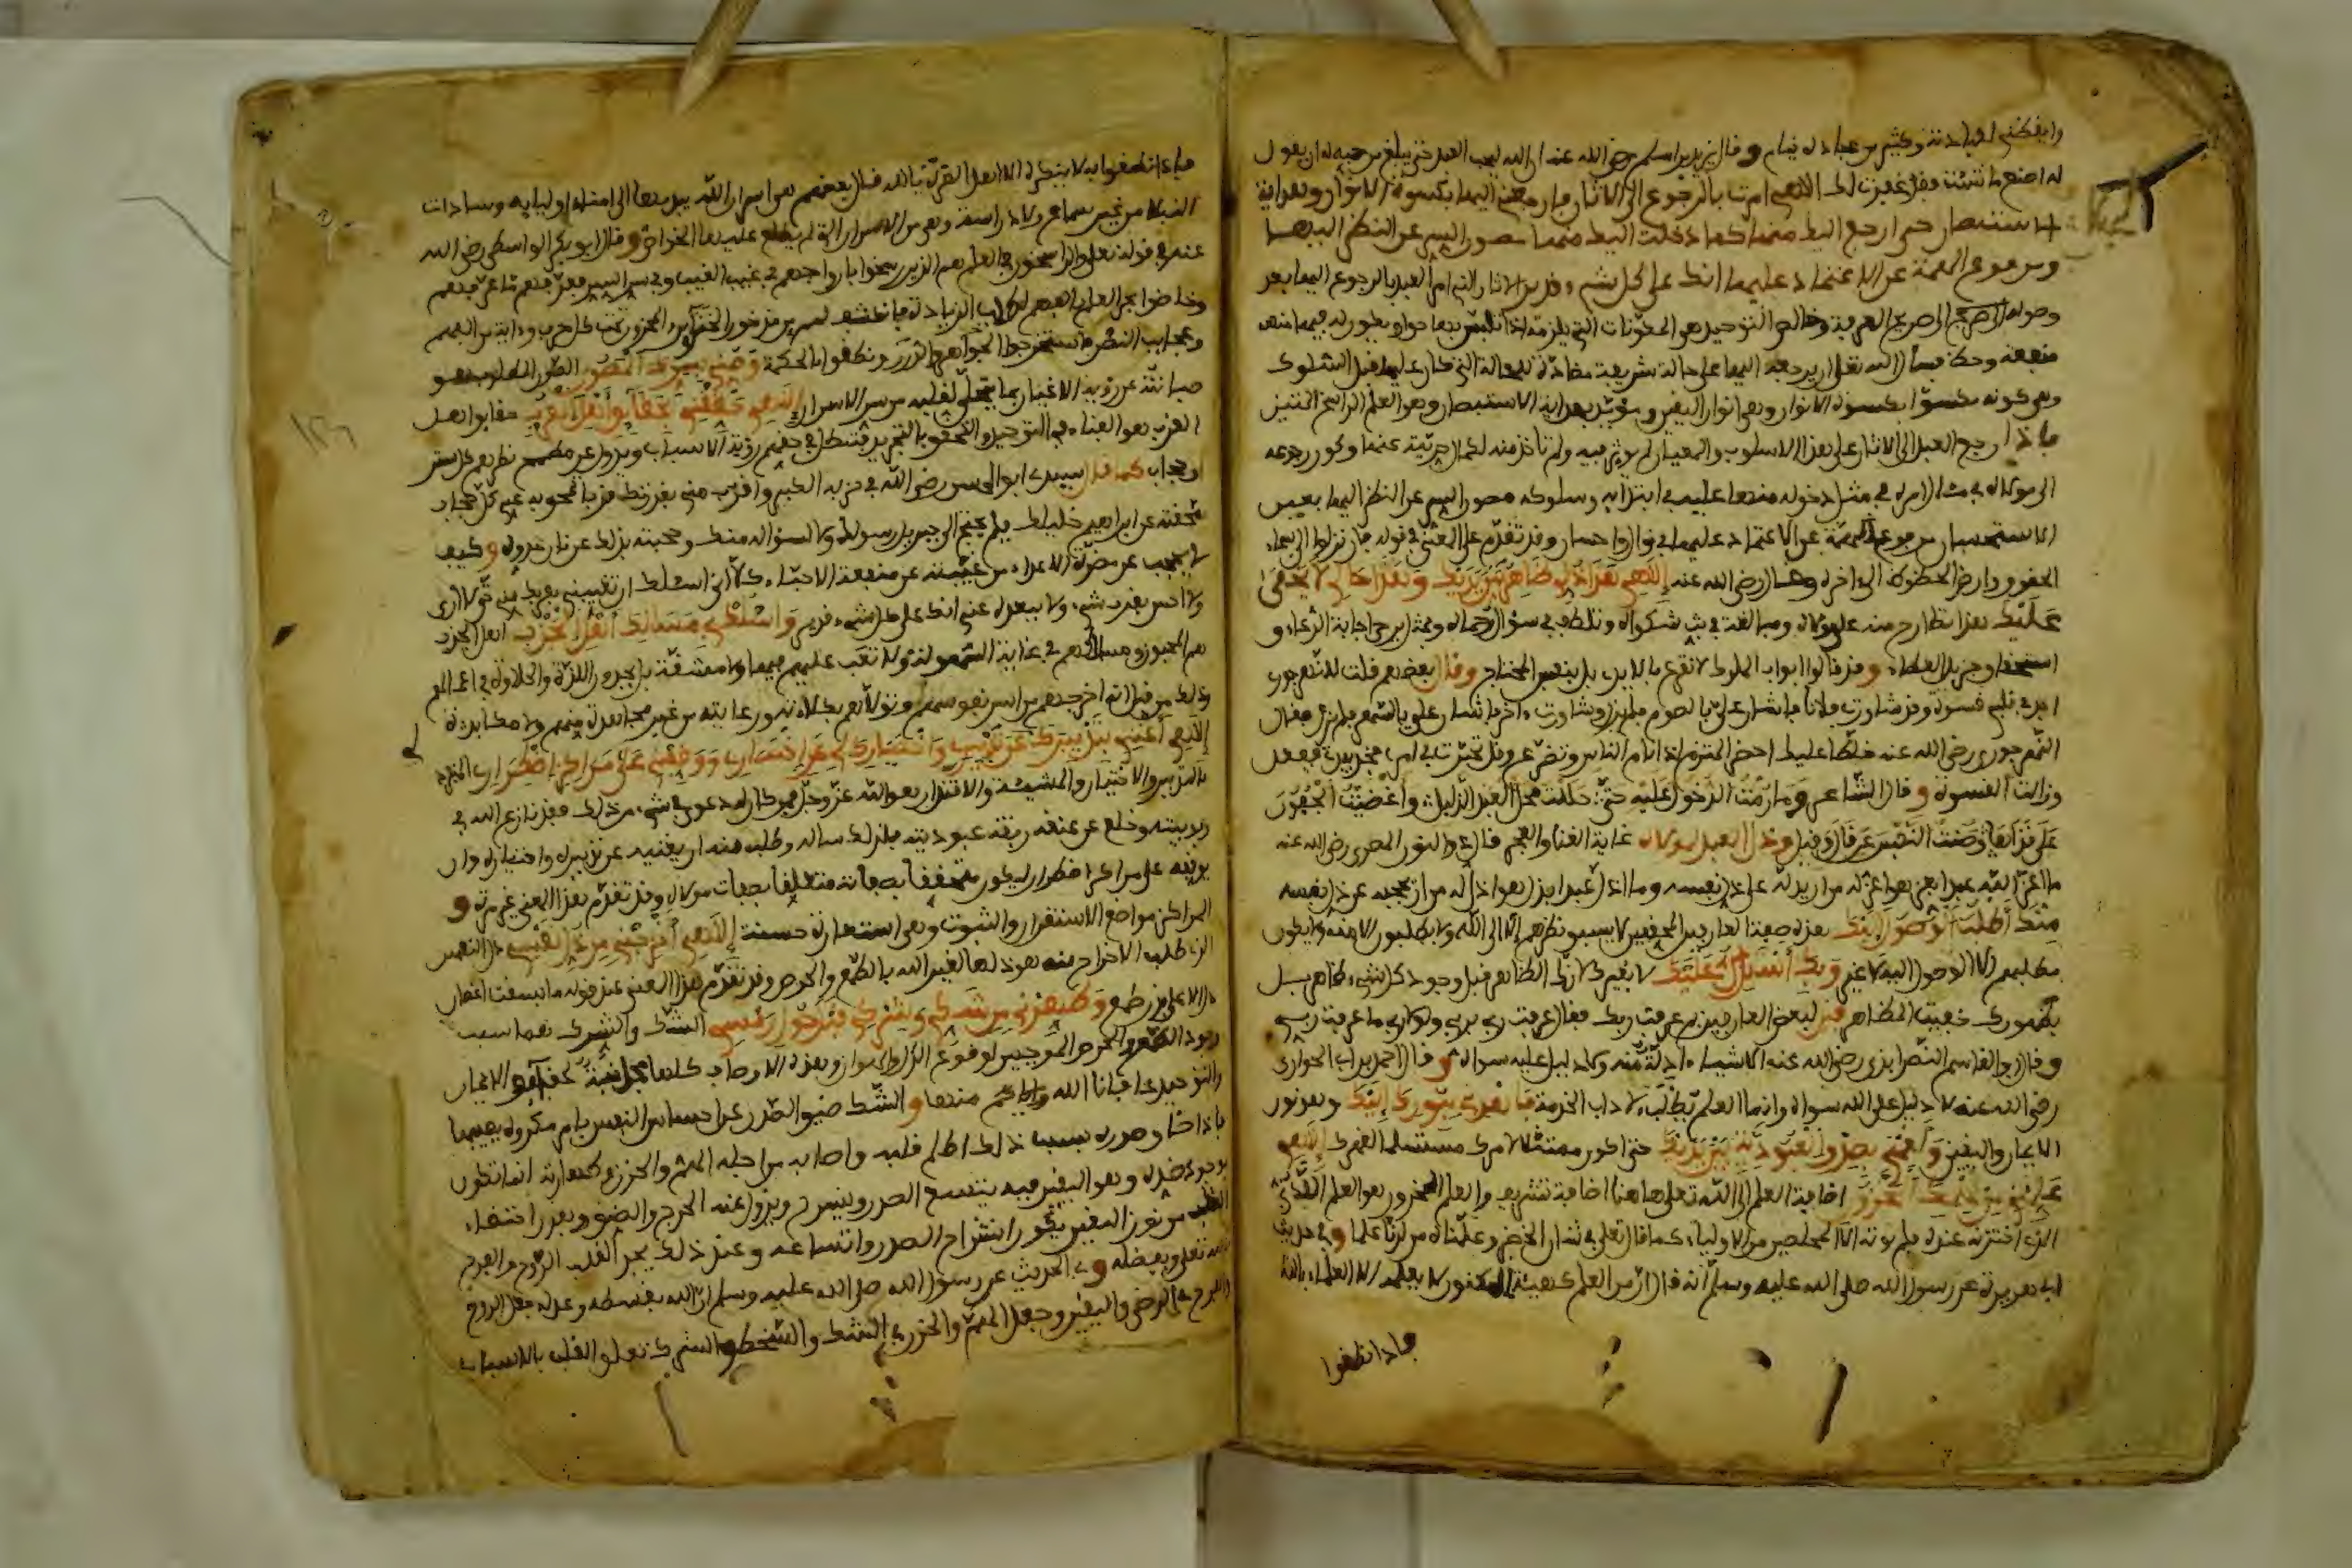 وايقظني لعبادته وكثير من عباده نيام وقال زيد بن اسلم رضي الله عنه ان الله ليحب العبد حتى يبلغ من حبه له ان يقول
له اصنع ما شئت فقد غفرت لك اللهم امرت بالرجوع الى الاثار فارجعني اليها بكسوة الانوار وهداية
الاستبصار حتى ارجع اليك منها كما دخلت اليك منها مصون السر عن النظر اليها
ومرفوع الهمة عن الاعتماد عليها انك على كل شيء قدير الاثار التي امر العبد بالرجوع اليها بعد
وصوله الى صريح المعرفة وخالص التوحيد هي المكونات التي يلزمه
منفعة وحظ فسأل الله تعالى ان يرجعه اليها على حالة شريفة مضادة للحالة التي كان عليها قبل السلوك
وهي كونه مكسوا بكسوة الانوار وهي انوار اليقين و بهداية الاستبصار وهو العلم الراسخ المتين
فاذا رجع العبد الى الاثار على هذا الاسلوب والمعيار لم يؤثر فيه ولم تاخذ منه لكمال حريته عنها وكون رجوعه
الى مولاه في مثل دخوله منها عليه في ابتدائه وسلوكه مصون السر عن النظر اليها بعين
الاستحسان مرفوع الهمة عن الاعتماد عليها في نوال واحسان وقد تقدم هذا المعنى في قوله فان نزلوا الى سماء
الحقوق وارض الحظوظ الى اخره وقال رضي الله عنه إلهي هذا ذلي ظاهر بين يديك وهذا حالي لا يخفى
عليك هذا تطارح منه على مولاه ومبالغة في بث شكواه وتلطف في سؤال رحماه وبمثل هذا يرجى اجابة الدعاء و
استحقاق جزيل العطاء وقد قالوا ابواب الملوك لا تقرع بالايدي بل بنفس المحتاج وقال بعضهم قلت للنهرجوري
اجد في قلبي قسوة وقد شاورت فلانا فاشار علي بالصوم فلم تزل وشاورت اخر فاشار علي بالسهر فلم تزل فقال
النهرجوري رضي الله عنه خلطا عليك احضر الملتزم اذا نام الناس وتضرع وقل تحيرت في امري فخذ بيدي ففعل
وزالت القسوة وقال الشاعر وما رمت الدخول عليه حتى حللت محل العبد الذليل واغضيت الجفون
على قذاها وصنت النفس عن قال وقيل وذل العبد لمولاه غاية الغنا والعز قال ذو النون المصري رضي الله عنه
ما اعز الله عبدا بعز هو اعز له من ان يدله على ذل نفسه وما اذل الله عبدا بذل هو اذل له من ان يحجبه عن ذل نفسه
منك أطلب الوصول إليك هذه صفة العارفين المحققين لا يسبق نظرهم الا الى الله ولا يطلبون الا منه ولا يكون
مطلبهم الا الوصول اليه لا غير وبك أستدل عليك لا بغيرك لانك الظاهر قبل وجود كل شيء ظاهر بل
بظهورك خفيت المظاهر قيل لبعض العارفين بم عرفت ربك فقال عرفت ربي بربي ولولا ربي ما عرفت ربي
وقال ابو القاسم النصراباذي رضي الله عنه الاشياء ادلة منه ولا دليل عليه سواه وقال احمد بن ابي الحواري
رضي الله عنه لا دليل على الله سواه وانما العلم يطلب لاداب الخدمة فاهدني بنورك إليك وهو نور
الايمان واليقين وأقمني بصدق العبودية بين يديك حتى اكون ممتثلا لامرك مستسلما لقهرك إلهي
علمني من علمك المخزون اضافة العلم الى الله تعالى هاهنا اضافة تشريف والعلم المخزون هو العلم اللدني
الذي اختزنه عنده فلم يؤته الا المخلصين من الاولياء كما قال تعالى في شان الخضر وعلمناه من لدنا علما وفي حديث
ابي هريرة عن رسول الله صلى الله عليه وسلم انه قال ان من العلم كهيئة المكنون لا يعلمه الا العلماء بالله
فاذا نطقوا
فاذا نطقوا به لا ينكره الا اهل الغرة بالله قال بعضهم هي اسرار الله يبديها الى امناء اوليائه وسادات
النبلاء من غير سماع ولا دراسة وهي من الاسرار التي لم يطلع عليها الا الخواص وقال ابو بكر الواسطي رضي الله
عنه في قوله تعالى والراسخون في العلم هم الذين رسخوا بارواحهم في غيب الغيب وفي سر السر فعرفهم ما عرفهم
وخاضوا بحر العلم بالفهم لطلب الزيادة فانكشف لهم من مذخور الخزائن والمخزون تحت كل حرف واية من الفهم
وعجائب النظر فاستخرجوا الجواهر والدرر ونطقوا بالحكمة وصني بسر اسمك المصون
صيانته عن رؤية الاغيار بما يتجلى لقلبه من سر الاسرار إلهي حققني بحقائق أهل القرب حقائق اهل
القرب هو الفناء في التوحيد والتحقق بالتجريد فتبطل في حقهم رؤية الاسباب ويزول عن مطمح نظرهم كل ستر
وحجاب كما قال سيدي ابو الحسن رضي الله في حزبه الكبير واقرب مني بقدرتك قربا تمحق به عني كل حجاب
محقته عن ابراهيم خليلك فلم يحتج الى جبريل رسولك ولا لسؤاله منك وحجبته بذلك عن نار عدوه وكيف
لا يحجب عن مضرة الاعداء من غيبته عن منفعة الاحباء كلا اني اسالك ان تغيبني بقربك مني حتى لا ارى
ولا احس بقرب شيء ولا ببعده عني انك على كل شيء قدير واسلك بي مسالك أهل الجذب اهل الجذب
هم المحبوبون ومسالكهم في غاية السهولة لا تعب عليهم فيها ولا مشقة بل يجدون اللذة والحلاوة في اعمالهم
وذلك من قبل انه اخرجهم من اسر نفوسهم وتولاهم بكلاءته ورعايته من غير مجاهدة منهم ولا مكابدة
إلهي أغنني بتدبيرك عن تدبيري واختيارك لي عن اختياري وأوقفني على مراكز اضطراري المنفرد
بالتدبير والاختيار والمشيئة والاقتدار هو الله عز وجل فمن كان له دعوى في شيء من ذلك فقد نازع الله في
ربوبيته وخلع عن عنقه ربقة عبوديته فلذلك سأله وطلب منه ان يغنيه عن تدبيره واختياره وان
يوقفه على مراكز اضطراره ليكون متحققا بصفاته متعلقا بصفات مولاه وقد تقدم هذا المعنى غير مرة و
المراكز مواضع الاستقرار والثبوت وهي استعارة حسنة إلهي أخرجني من ذل نفسي ذل النفس
الذي طلب الاخراج منه هو ذلها لغير الله بالطمع والحرص وقد تقدم هذا المعنى عند قوله ما بسقت اغصان
ذل الا على بذر طمع وطهرني من شكي وشركي قبل حلول رمسي الشك والشرك هما سبب
وجود الطمع والحرص الموجبين لوقوع الذل والهوان وهذه الاوصاف كلها مجانبة لحقائق الايمان
والتوحيد عافانا الله منها والشك ضيق الصدر عند احساس النفس بامر مكروه يصيبها
فاذا ضاق صدره بسبب ذلك اظلم قلبه واصابه من اجله الهم والحزن وطهارته انما تكون
بوجود ضده وهو اليقين فيه يتسع الصدر وينشرح ويزول عنه الحرج والضيق وبقدر احتظاء
القلب من نور اليقين يكون انشراح الصدر واتساعه وعند ذلك يجد القلب الروح والفرح
بالله تعالى وبفضله وفي الحديث عن رسول الله صلى الله عليه وسلم ان الله بقسطه وعدله جعل الروح
والفرح في الرضى واليقين وجعل الهم والحزن في الشك والسخط والشرك تعلق القلب بالاسباب